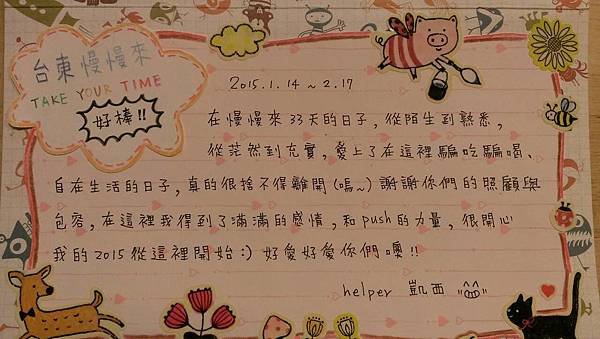 台東慢慢來
TAKE YOUR TIME
好棒!!
2015.1.14 ~ 2.17
在慢慢來 33天的日子, 從陌生到熟悉,
從茫然到充實, 愛上了在這裡騙吃騙喝、
自在生活的日子, 真的很捨不得離開 (嗚~) 謝謝你們的照顧與
包容, 在這裡我得到了滿滿的感情, 和 push 的力量, 很開心
我的 2015 從這裡開始 :) 好愛好愛你們噢!!
helper 凱西